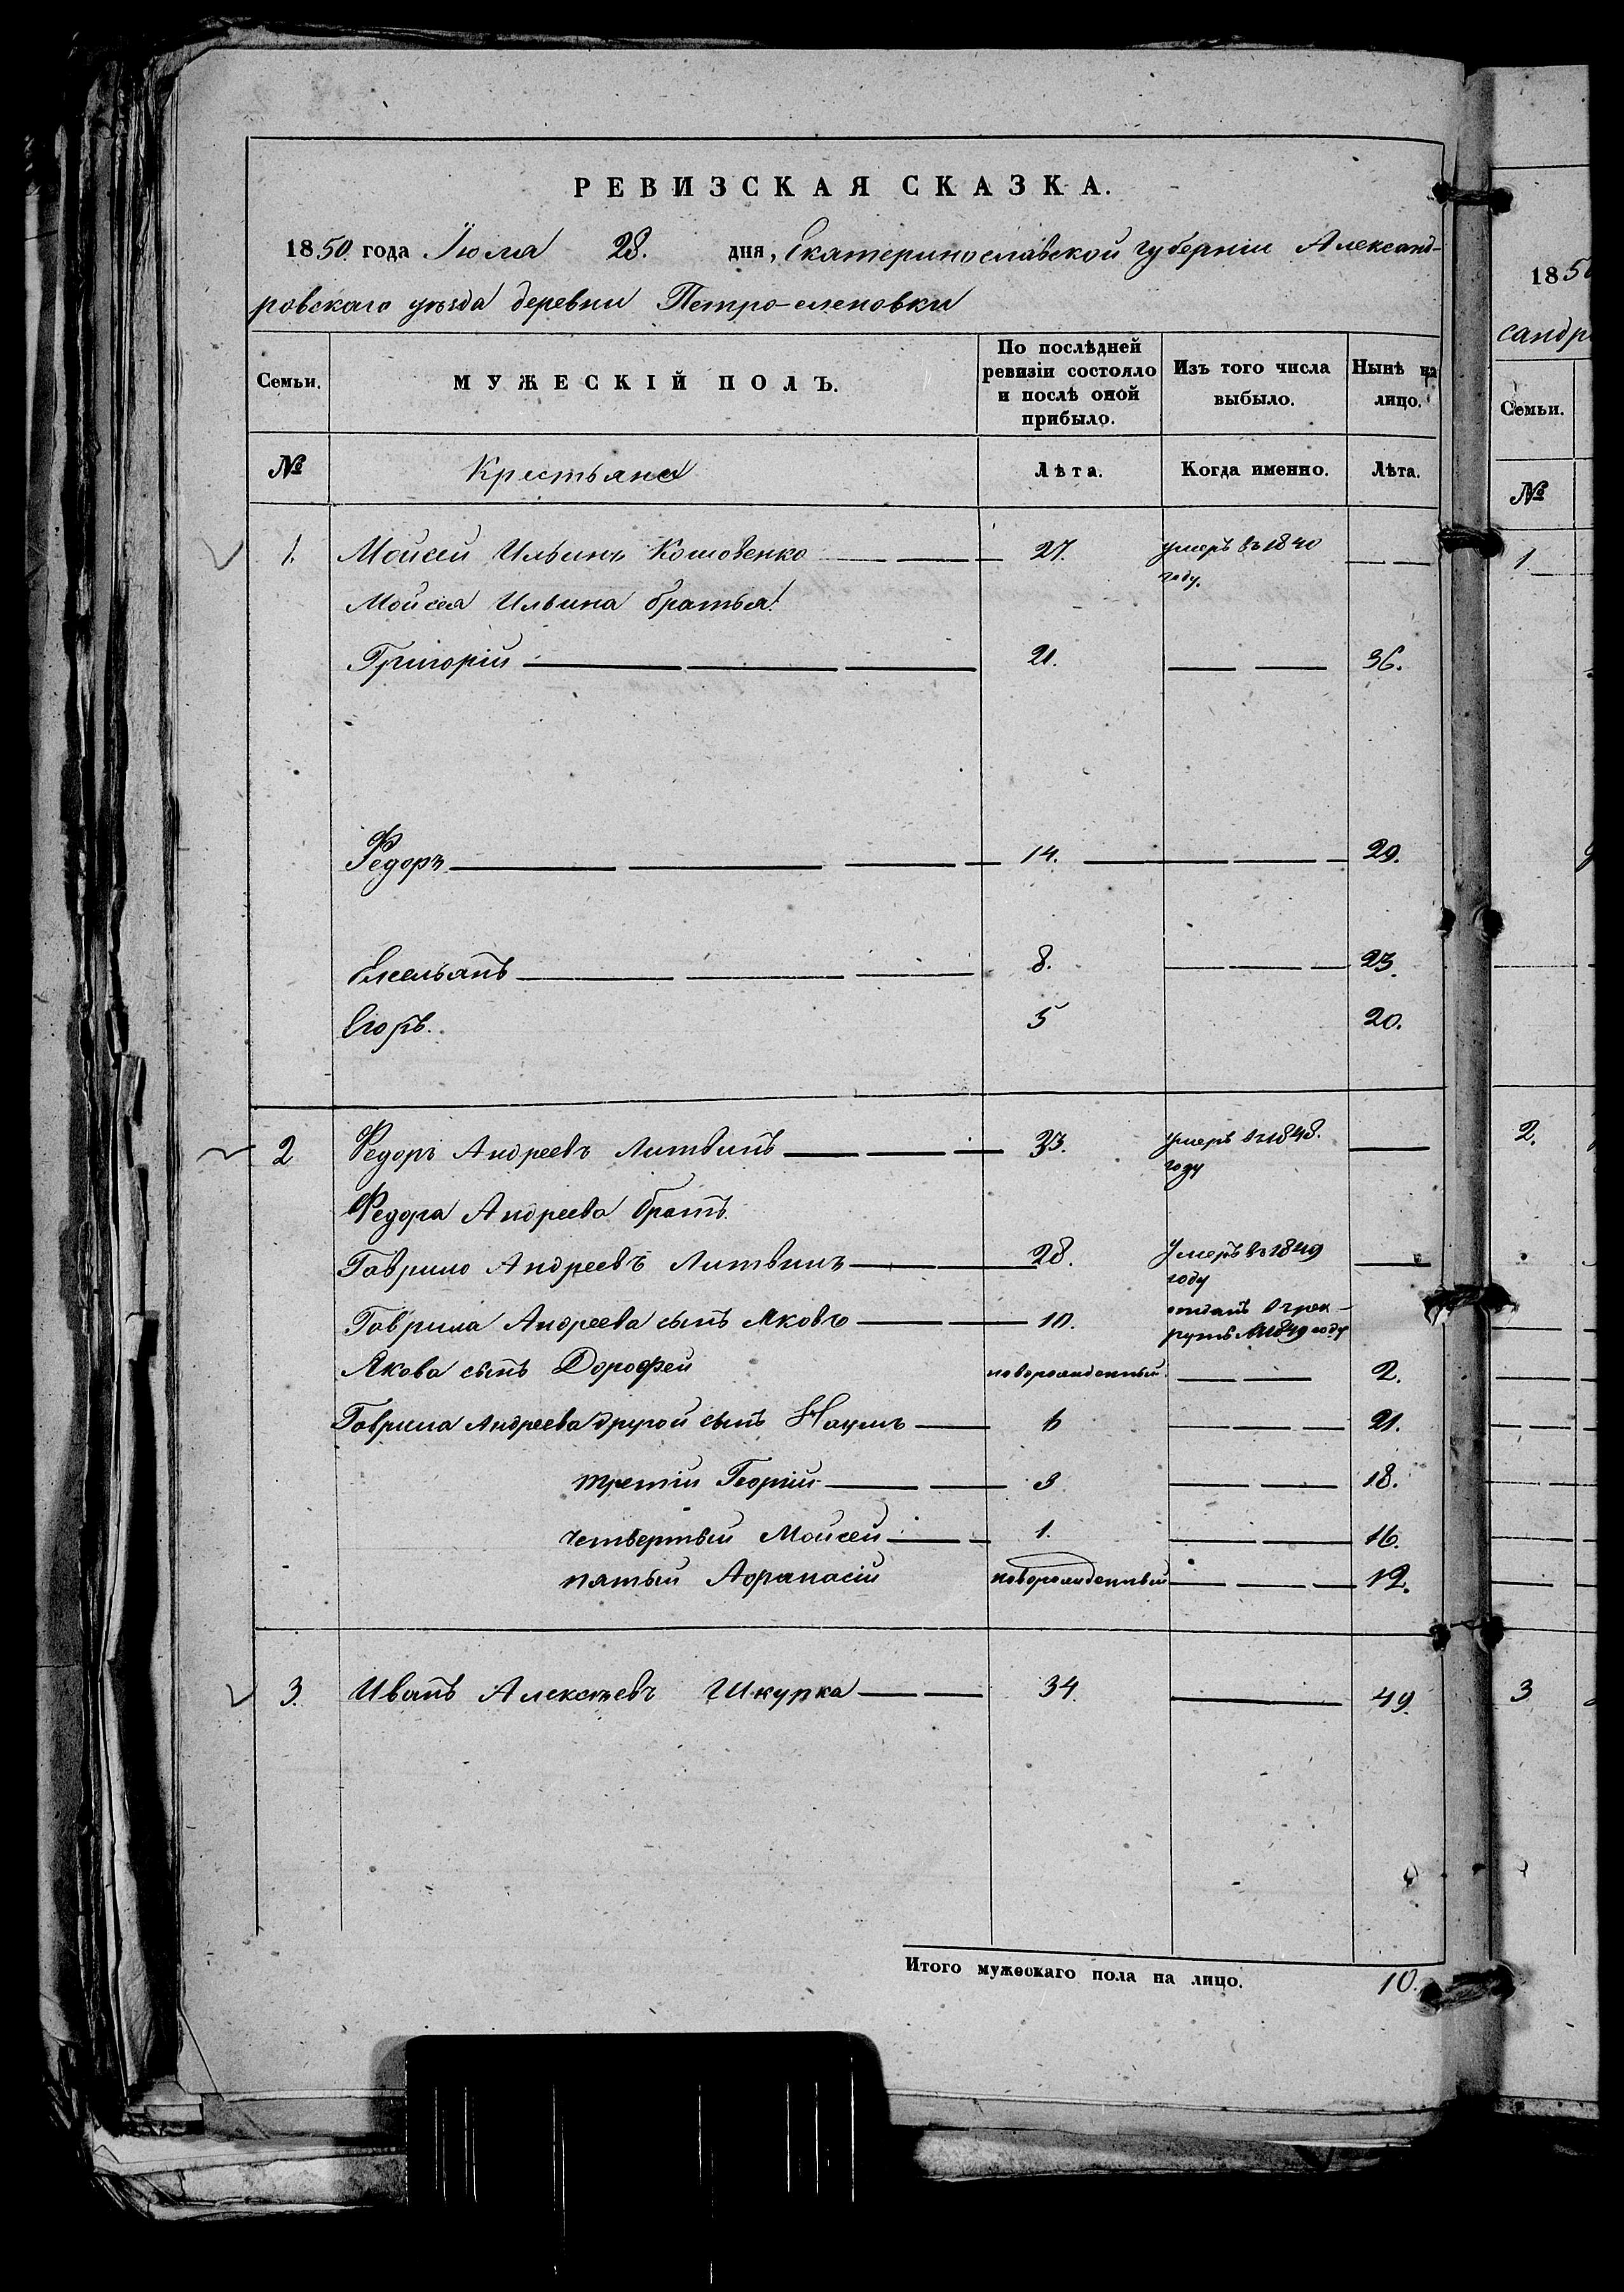 РЕВИЗСКАЯ СКАЗКА.
1850 года Июля 28. дня, Екатеринославской губерніи Александ-
ровскаго уѣзда деревни Петро-еленовки
Семьи. МУЖЕСКІЙ ПОЛЪ. По послѣдней ревизіи состояло и послѣ оной прибыло. Изъ того числа выбыло. Нынѣ на лицо.
№ Крестьяне Лѣта. Когда именно. Лѣта.
1. Мойсей Ильинъ Кошовенко 27. умеръ въ 1840 году.
Мойсея Ильина братья:
Григорій 21. 36.
Федоръ 14. 29.
Емельянъ 8. 23.
Егоръ. 5 20.
2 Федоръ Андреевъ Литвинъ 33. умеръ въ 1848. году
Федора Андреева братъ
Гаврило Андреевъ Литвинъ 28. Умеръ въ 1849 году
Гаврила Андреева сынъ Яковъ 10. отданъ въ рек-
руты въ 1849 году
Якова сынъ Дорофей новорожденный 2.
Гаврила Андреева другой сынъ Наумъ 6 21.
третій Георгій 3 18.
четвертый Мойсей 1. 16.
пятый Афанасій новорожденный 12.
3. Иванъ Алексѣевъ Шкурка 34. 49.
Итого мужескаго пола на лицо. 10.
1850
сандр
Семьи.
№
1.
2.
3